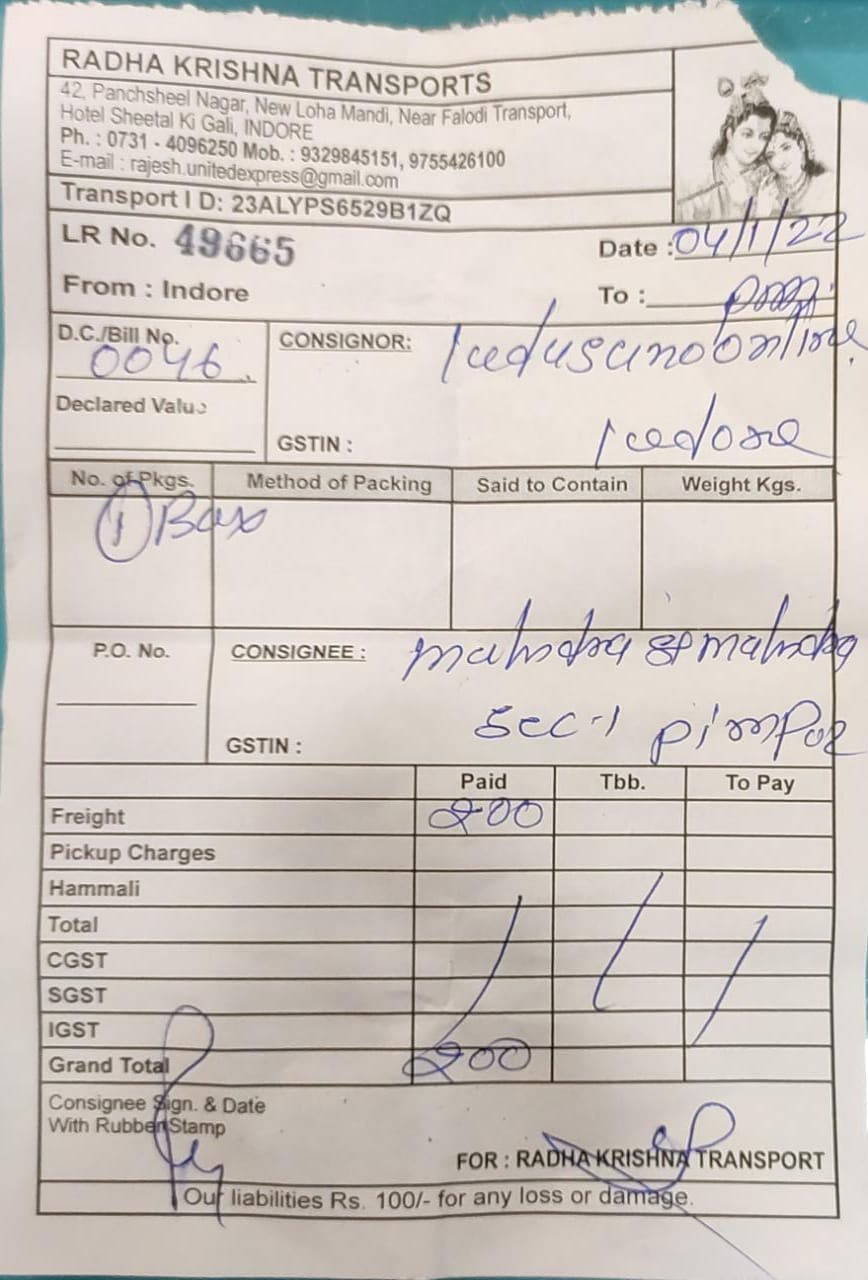 RADHA KRISHNA TRANSPORTS
42, Panchsheel Nagar, New Loha Mandi, Near Falodi Transport,
Hotel Sheetal Ki Gali, INDORE
Ph. : 0731 - 4096250 Mob. : 9329845151, 9755426100
E-mail : rajesh.unitedexpress@gmail.com
Transport I D: 23ALYPS6529B1ZQ
LR No. 49665
Date : 04/1/22
From : Indore
To :
D.C./Bill No.
0046
CONSIGNOR:
Declared Value
GSTIN :
No. of Pkgs. Method of Packing Said to Contain Weight Kgs.
1 Box
P.O. No.
CONSIGNEE : mahindra & mahindra
sec-1
GSTIN :
Paid Tbb. To Pay
Freight 200
Pickup Charges
Hammali
Total
CGST
SGST
IGST
Grand Total 200
Consignee Sign. & Date
With Rubber Stamp
FOR : RADHA KRISHNA TRANSPORT
Our liabilities Rs. 100/- for any loss or damage.